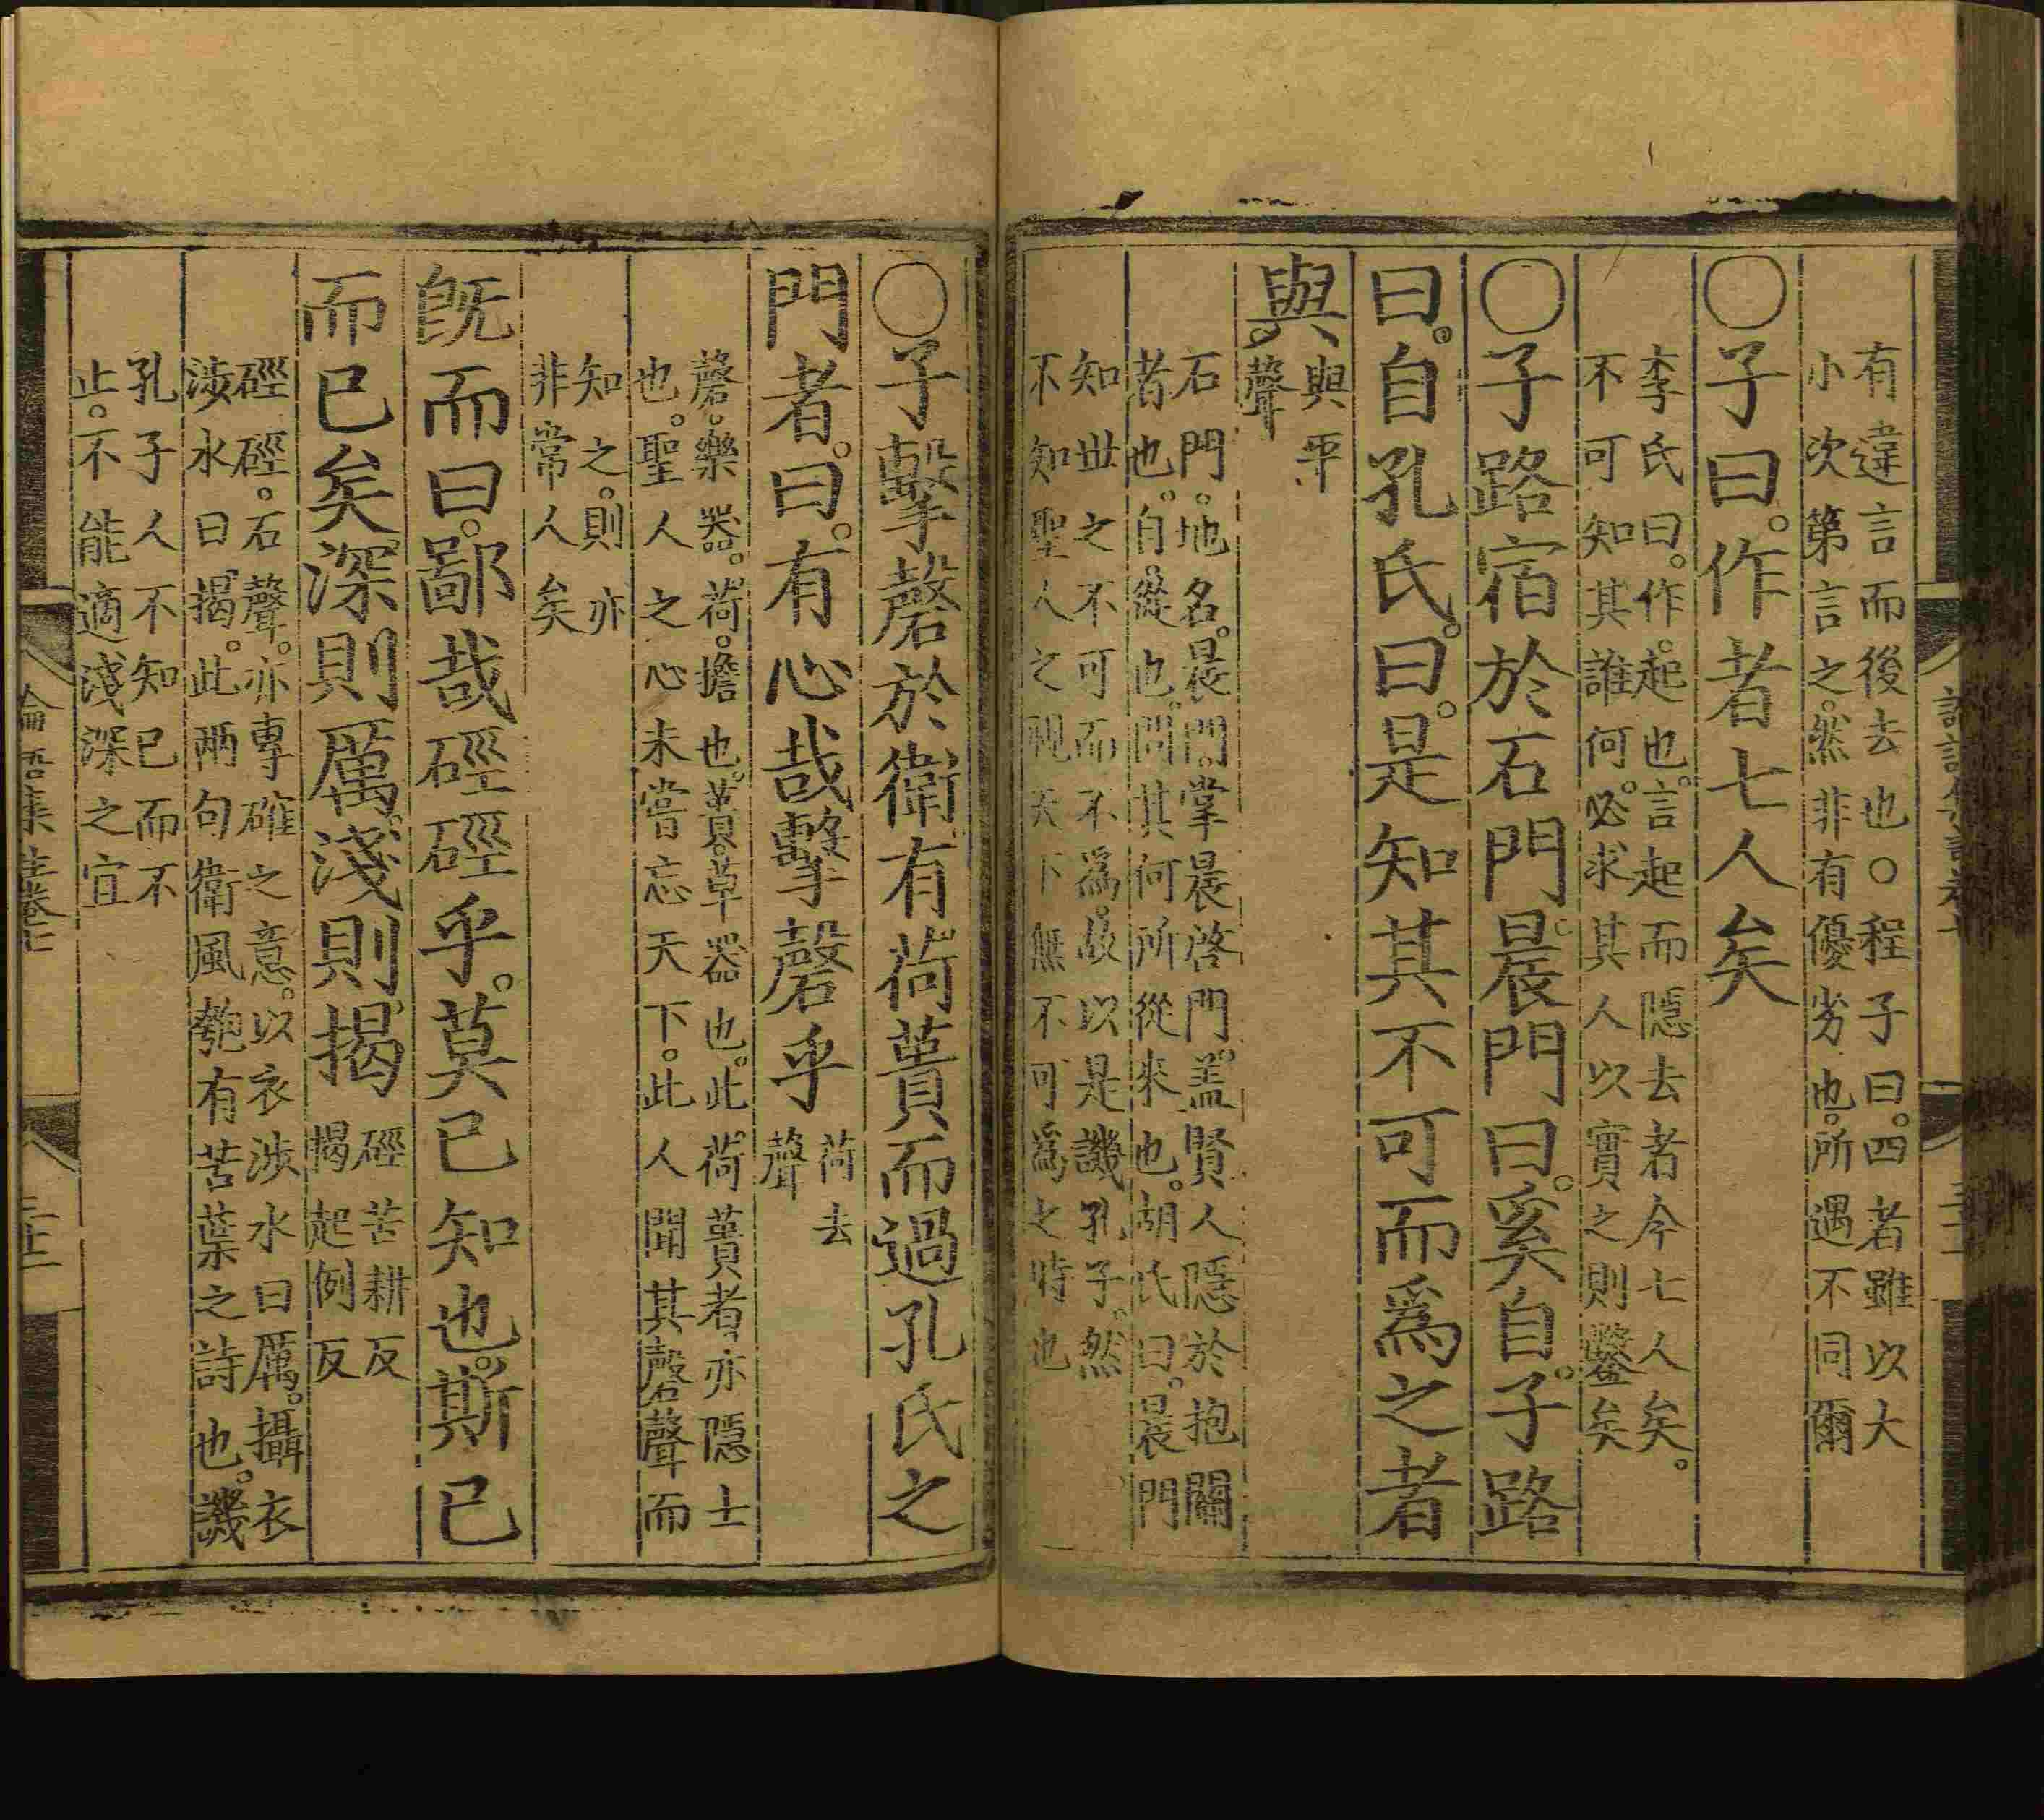 有違言而後去也○程子曰。四者雖以大
小次第言之。然非有優劣也。所遇不同爾
○子曰。作者七人矣
李氏曰。作。起也。言起而隱去者今七人矣。
不可知其誰何。必求其人以實之則鑿矣
○子路宿於石門。晨門曰。奚自。子路
曰。自孔氏。曰。是知其不可而爲之者
與。
與平
聲
石門。地名。晨門。掌晨啓門。蓋賢人隱於抱關
者也。自。從也。問其何所從來也。胡氏曰。晨門
知世之不可而不爲。故以是譏孔子。然
不知聖人之視天下無不可爲之時也
○子擊磬於衛有荷蕢而過孔氏之
門者。曰。有心哉擊磬乎
荷去
聲
磬。樂器。荷。擔也。蕢。草器也。此荷蕢者亦隱士
也。聖人之心未嘗忘天下。此人聞其磬聲而
知之。則亦
非常人矣
旣而曰。鄙哉硜硜乎。莫己知也。斯已
而已矣深則厲。淺則揭
硜苦耕反
揭起例反
硜硜。石聲。亦專確之意。以衣涉水曰厲。攝衣
涉水曰揭。此兩句衛風匏有苦葉之詩也。譏
孔子人不知己而不
止。不能適淺深之宜
論語集註卷七